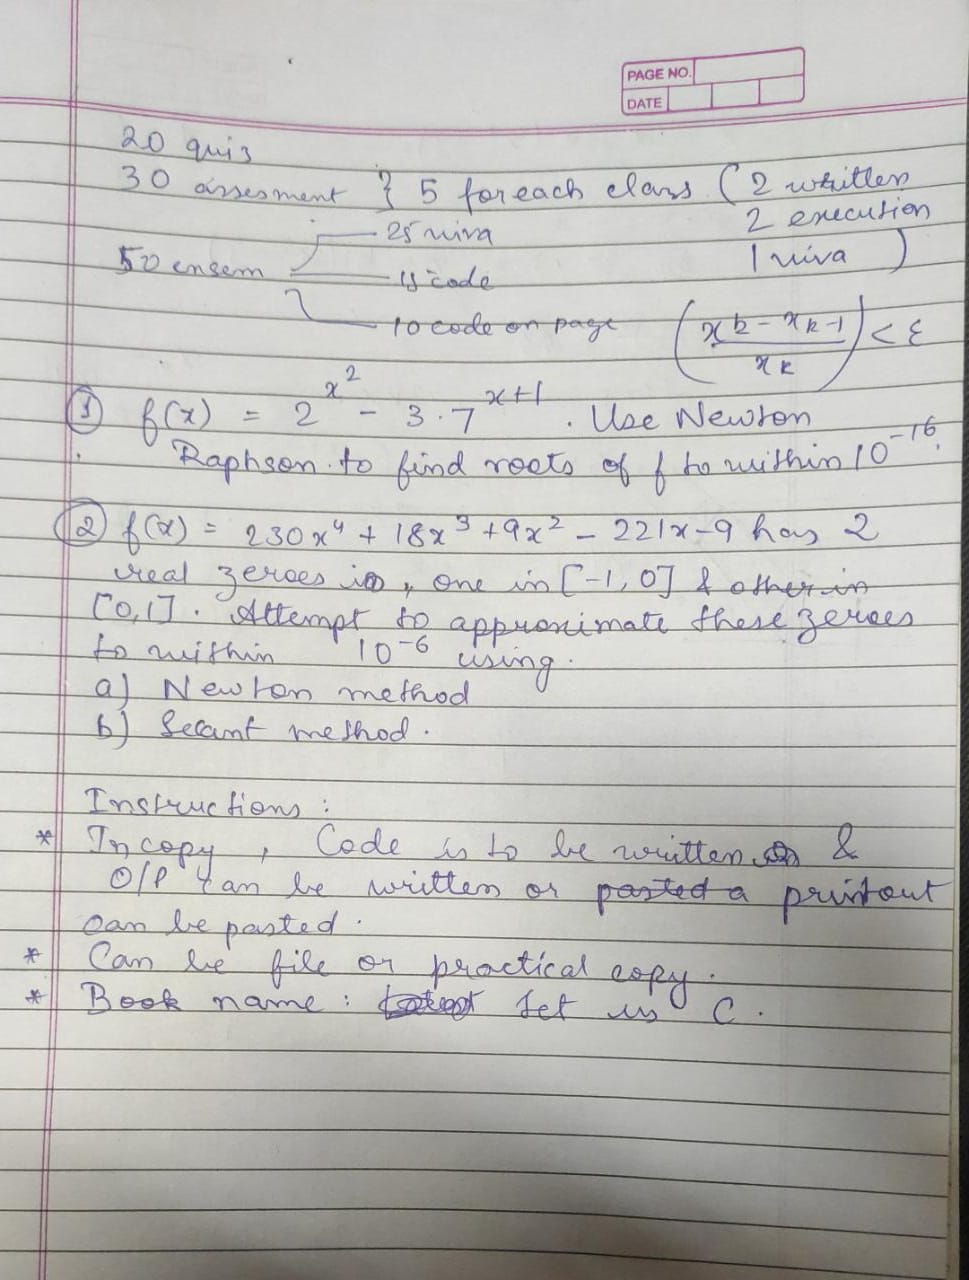 PAGE NO.
DATE
20 quiz
30 assesment } 5 for each class (2 written
2 execution
1 viva )
50 ensem
25 viva
15 code
10 code on page
(xk - xk-1 / xk) < ε
① f(x) = 2^x^2 - 3·7^x+1 . Use Newton
Raphson to find roots of f to within 10^-16.
② f(x) = 230x^4 + 18x^3 + 9x^2 - 221x - 9 has 2
real zeroes, one in [-1, 0] & other in
[0,1]. Attempt to approximate these zeroes
to within 10^-6 using.
a) Newton method
b) Secant method.
Instructions :
* In copy, Code is to be written &
O/P can be written or pasted a printout
can be pasted.
* Can be file or practical copy.
* Book name : Let us C.